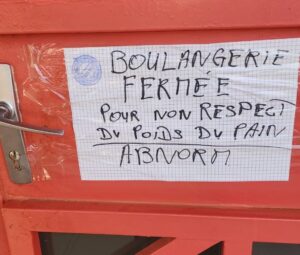 BOULANGERIE
FERMÉE
POUR NON RESPECT
DU POIDS DU PAIN
ABNORM